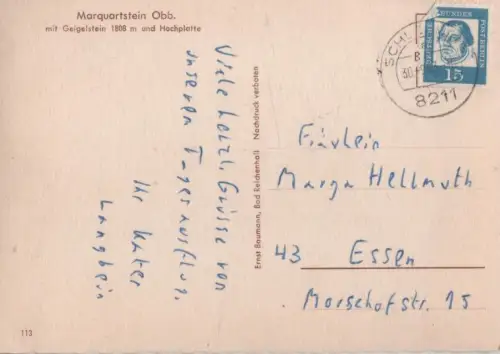 Marquartstein Obb.
mit Geigelstein 1808 m und Hochplatte
Viele herzl. Grüsse von
unserem Tagesausflug.
Ihr Kater
Langbein
Ernst Baumann, Bad Reichenhall Nachdruck verboten
DEUTSCHE
BUNDESPOST
15
SCHL
8211
Fräulein
Marga Hellmuth
43 Essen
Morsehofstr. 15
113